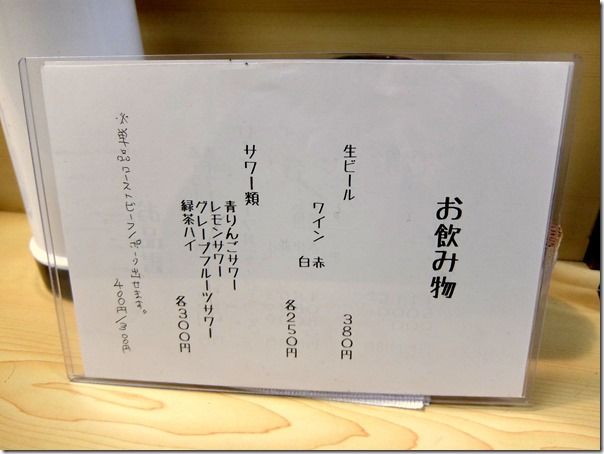 お飲み物
生ビール 380円
ワイン 赤
白 各250円
サワー類
青りんごサワー
レモンサワー
グレープフルーツサワー
緑茶ハイ 各300円
※単品ローストビーフ/ポーク出せます。
400円/300円